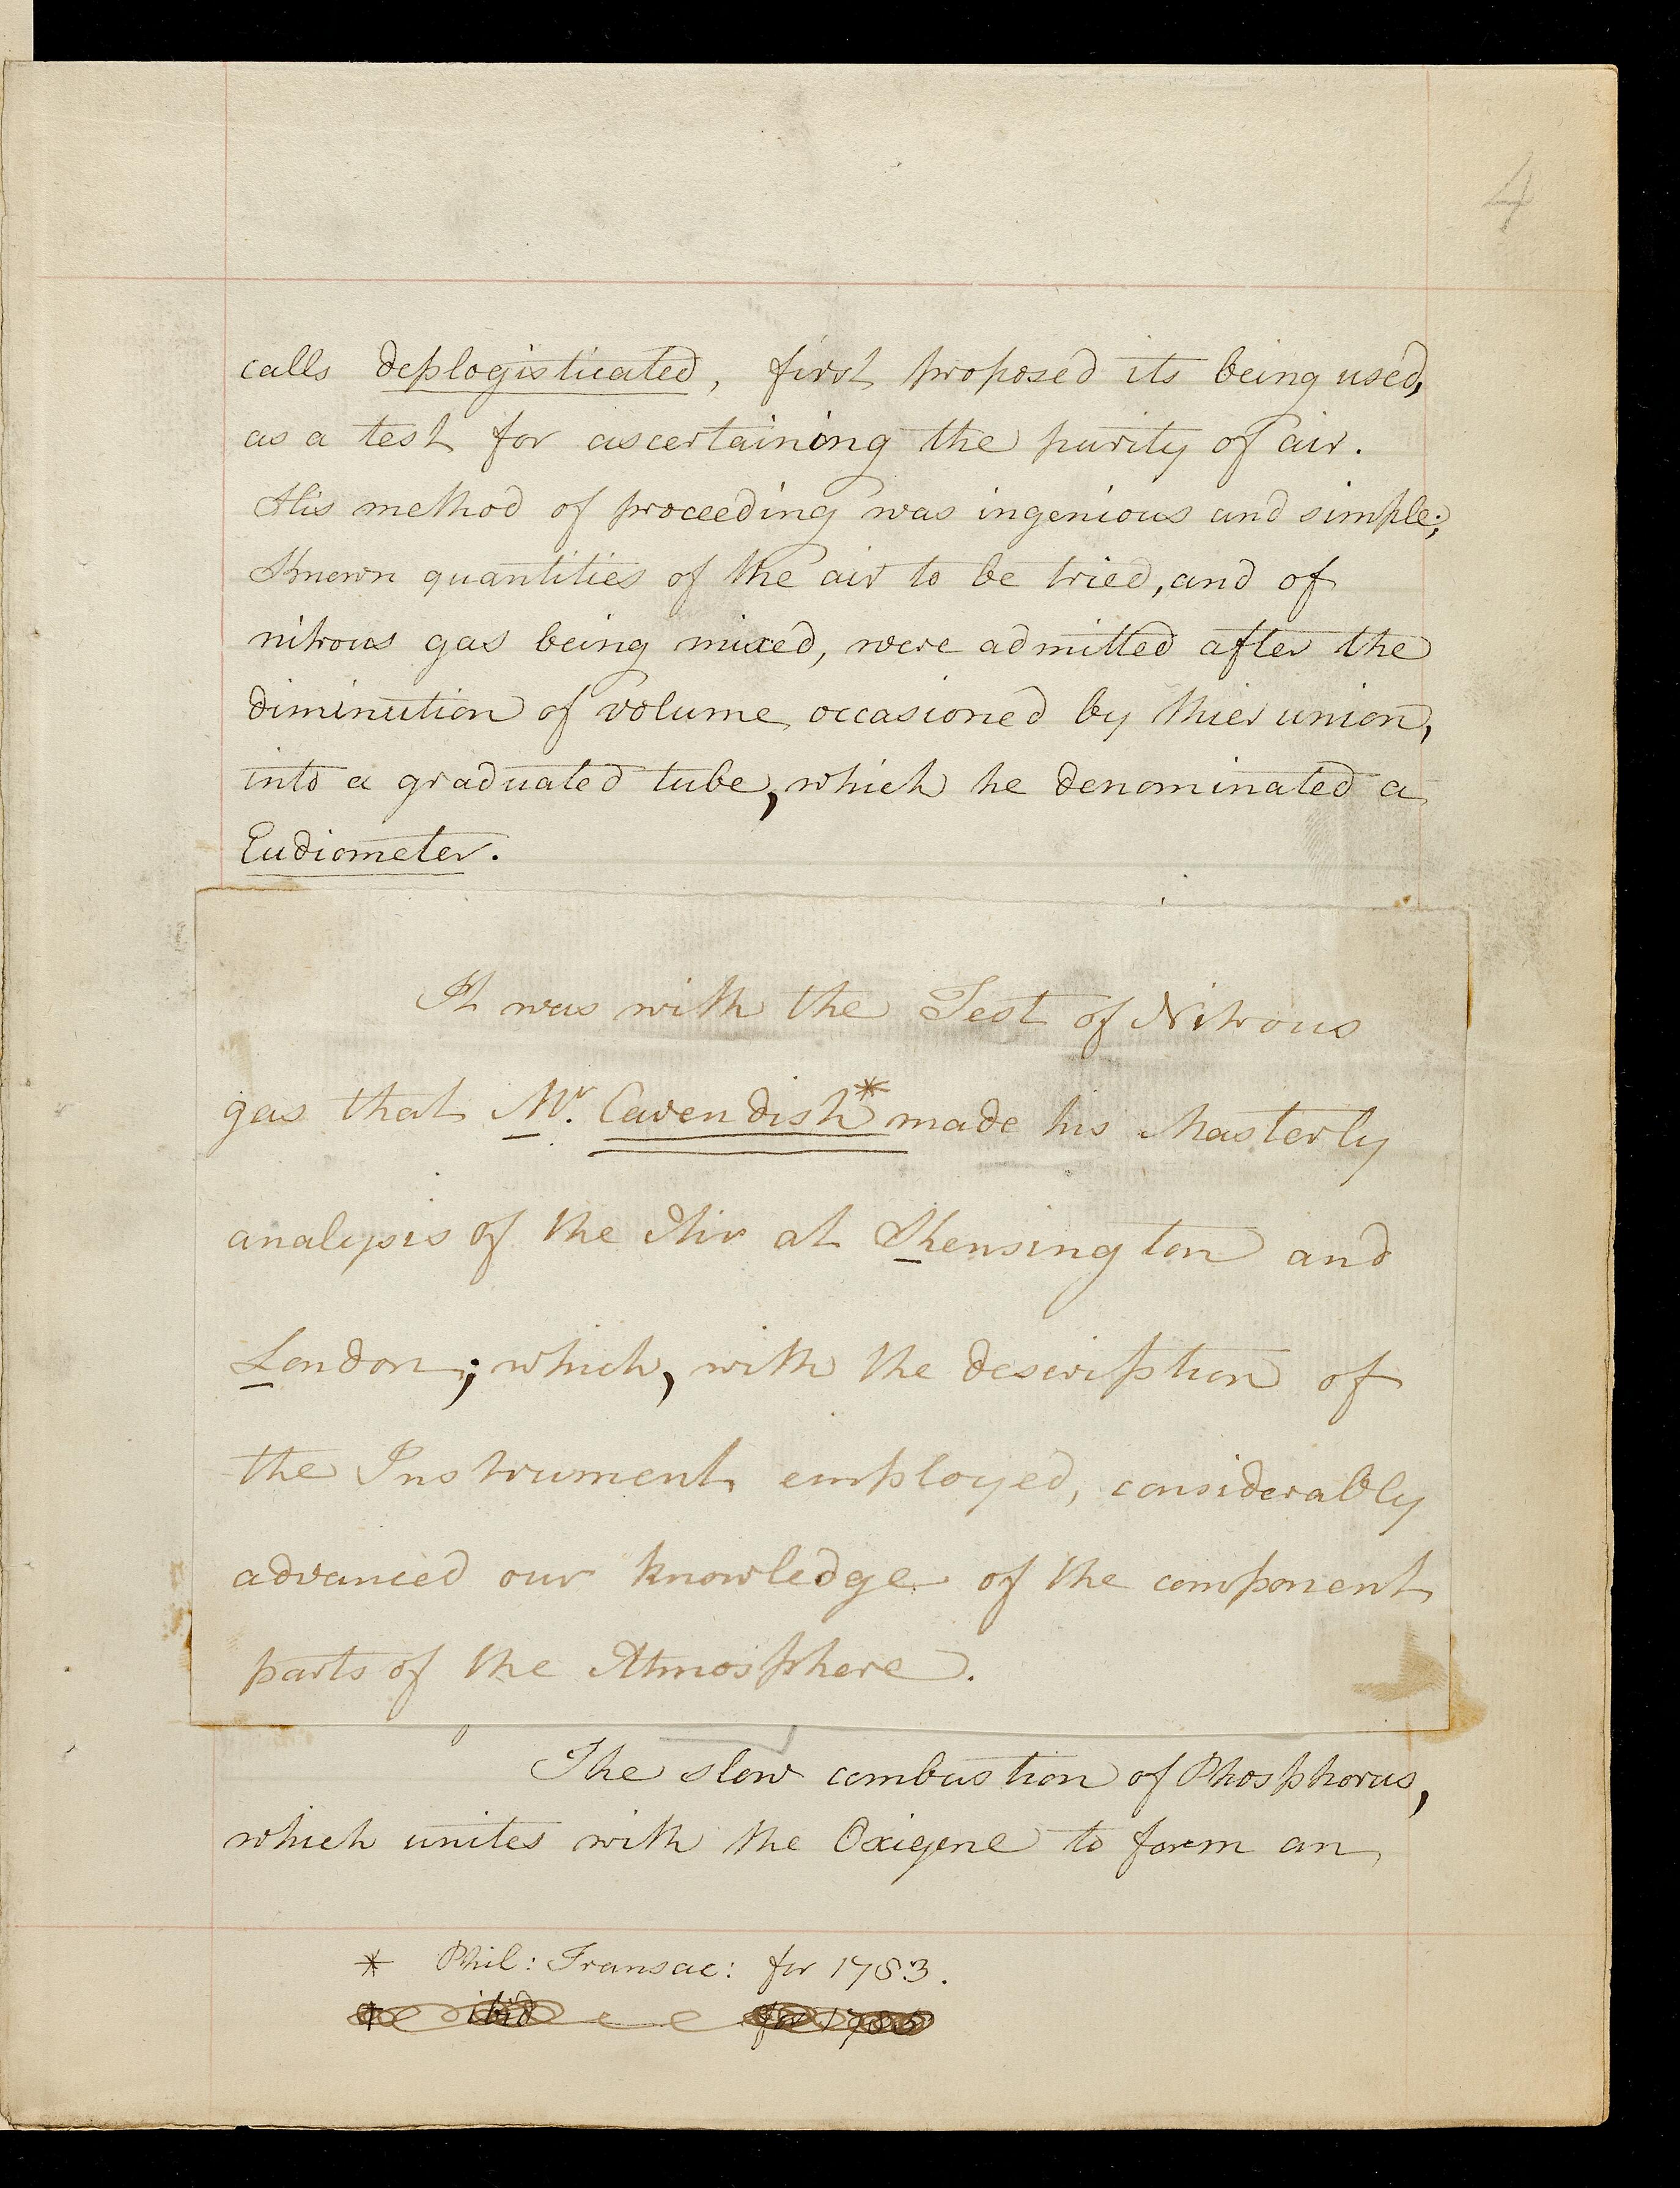 4
calls deplogisticated, first proposed its being used,
as a test for ascertaining the purity of air.
His method of proceeding was ingenious and simple;
Known quantities of the air to be tried, and of
nitrous gas being mixed, were admitted after the
diminution of volume occasioned by thier union,
into a graduated tube, which he denominated a
Eudiometer.
It was with the Test of Nitrous
gas that Mr. Cavendish* made his Masterly
analysis of the Air at Kensington and
London; which, with the description of
the Instrument employed, considerably
advanced our knowledge of the component
parts of the Atmosphere.
The slow combustion of Phosphorus,
which unites with the Oxigene to form an
* Phil: Transac: for 1783.
ibid for